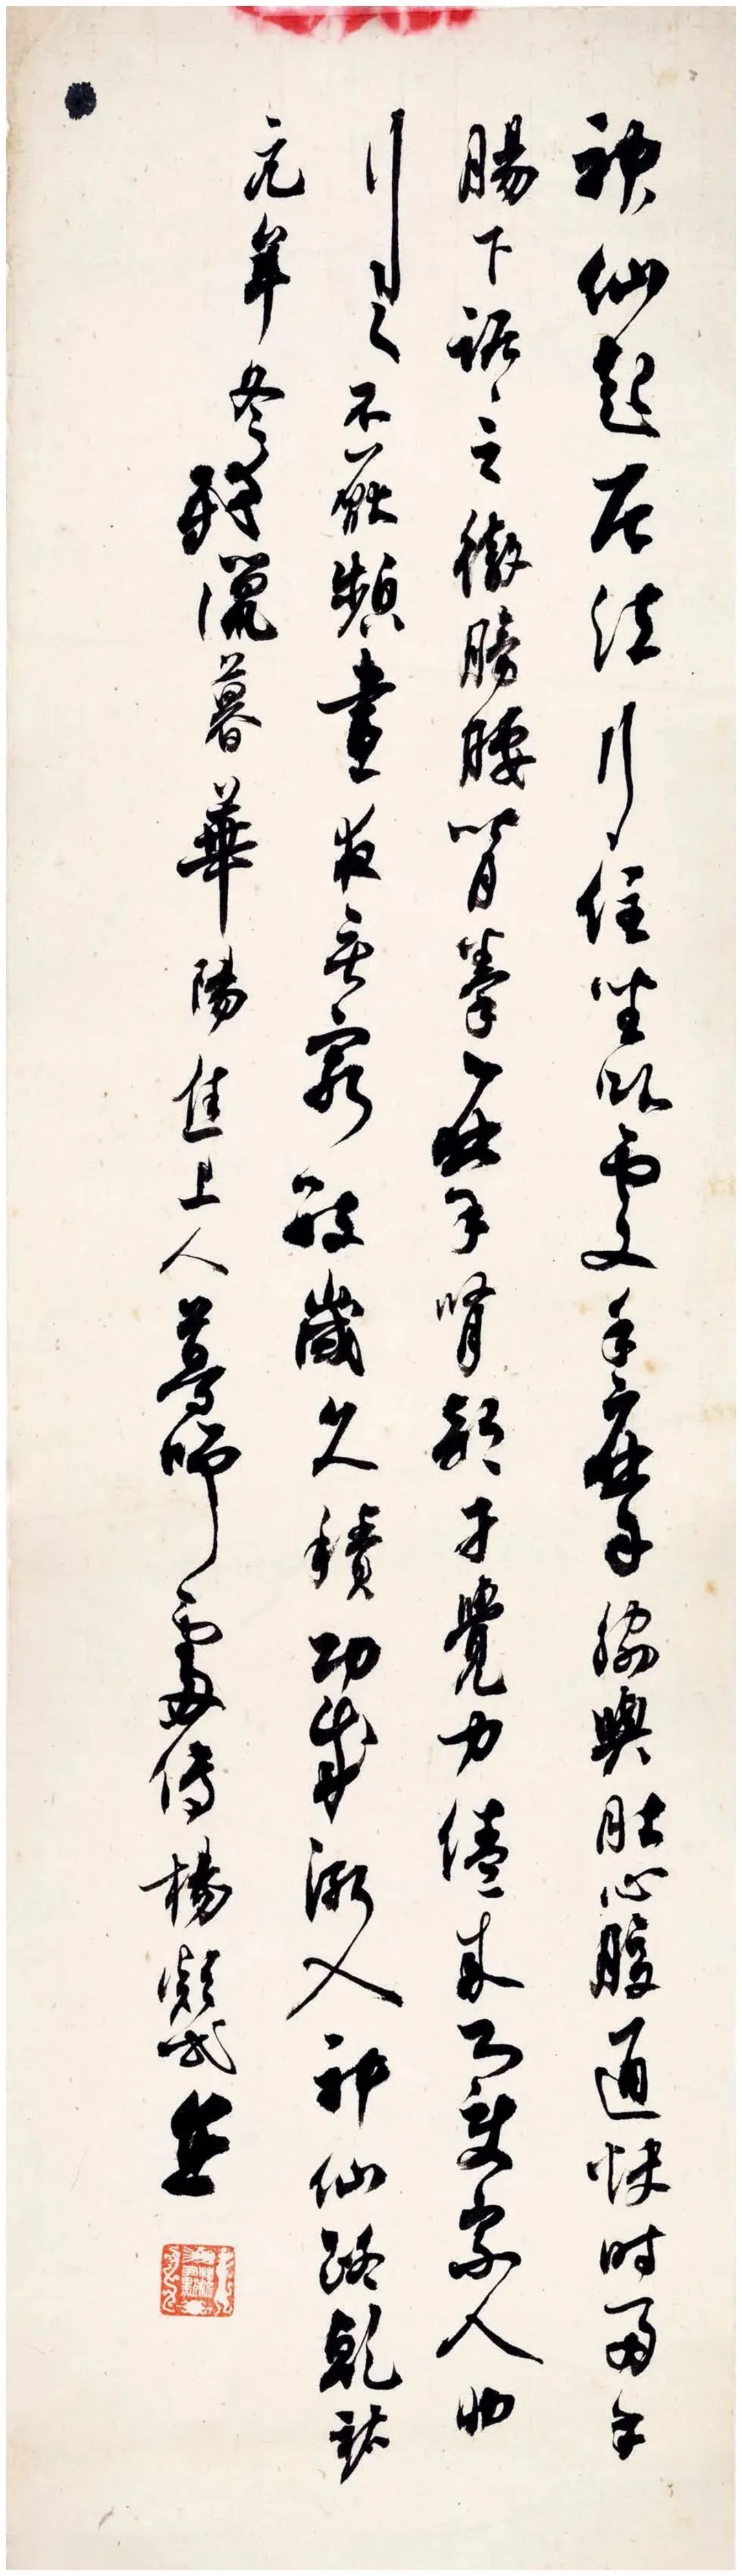 神仙起居法行住坐卧處手摩脅與肚心腹通快時兩手
腸下踞〻之徹膀腰背拳摩腎部才覺力倦來即使家人助
行之不厭頻晝夜無窮數歲久積功成漸入神仙路乾祐
元年冬殘臘暮華陽焦上人尊師處傳楊凝式